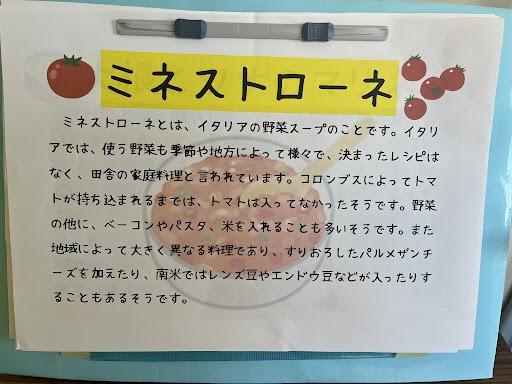 ミネストローネ
ミネストローネとは、イタリアの野菜スープのことです。イタリ
アでは、使う野菜も季節や地方によって様々で、決まったレシピは
なく、田舎の家庭料理と言われています。コロンブスによってトマ
トが持ち込まれるまでは、トマトは入ってなかったそうです。野菜
の他に、ベーコンやパスタ、米を入れることも多いそうです。また
地域によって大きく異なる料理であり、すりおろしたパルメザンチ
ーズを加えたり、南米ではレンズ豆やエンドウ豆などが入ったりす
ることもあるそうです。